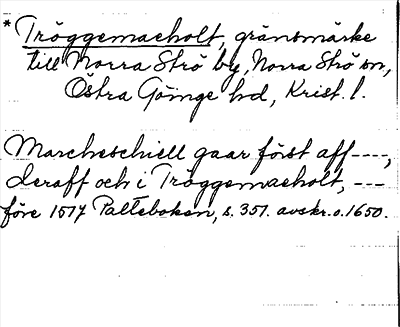 * Tröggemaeholt, gränsmärke
till Norra Strö by, Norra Strö sn,
Östra Göinge hd, Krist. l.
Marcheschiell gaar först aff ----,
deraff och i Tröggemaeholt, ---
före 1517 Palteboken, s. 351. avskr. o. 1650.